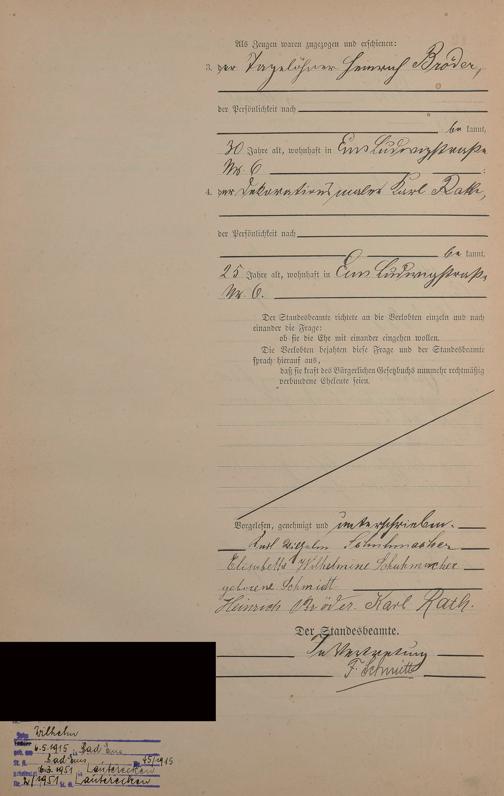 Als Zeugen waren zugezogen und erschienen:
3. der Tagelöhner Heinrich Bröder,
der Persönlichkeit nach
be kannt,
30 Jahre alt, wohnhaft in Ems Ludwigstraße
Nr. 6
4. der Dekorationsmaler Karl Rath,
der Persönlichkeit nach
be kannt,
25 Jahre alt, wohnhaft in Ems Ludwigstraße
Nr. 6.
Der Standesbeamte richtete an die Verlobten einzeln und nach
einander die Frage:
ob sie die Ehe mit einander eingehen wollen.
Die Verlobten bejahten diese Frage und der Standesbeamte
sprach hierauf aus,
daß sie kraft des Bürgerlichen Gesetzbuchs nunmehr rechtmäßig
verbundene Eheleute seien.
Vorgelesen, genehmigt und unterschrieben.
Karl Wilhelm Schuhmacher
Elisabetha Wilhelmine Schuhmacher
geborene Schmidt
Heinrich Bröder Karl Rath.
Der Standesbeamte.
In Vertretung
F. Schmitt
Sohn Wilhelm
geb. am 6.5.1915 in Bad Ems
St. A. Bad Ems Nr. 45/1915
6.3.1951 in Lauterecken
Nr. 2/1951 St. A. Lauterecken